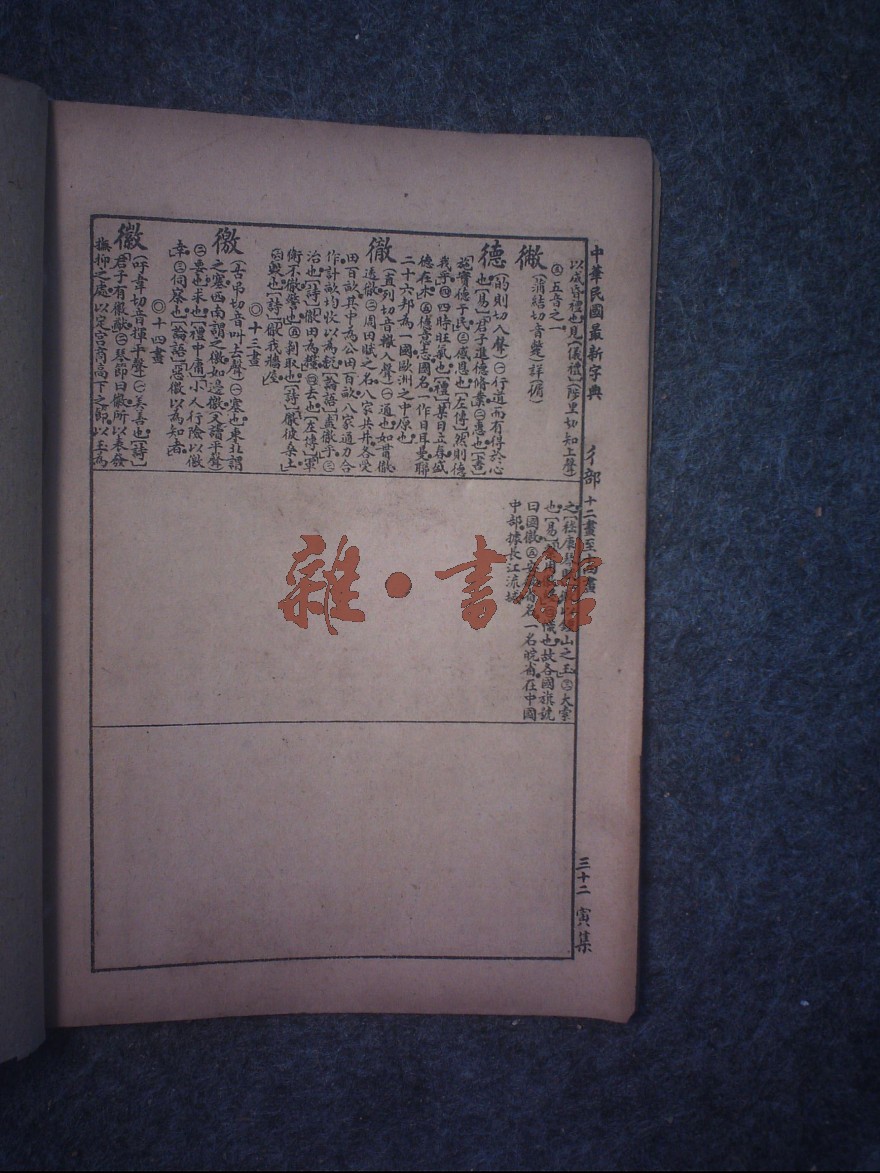 中華民國最新字典 彳部 十二畫至十四畫 三十二 寅集
以成昏禮也見〔儀禮〕(陟里切知上聲)
㊃五音之一
(蒲結切音蹩)詳〔徶〕
德
(的則切入聲)㊀行道而有得於心
也〔易〕君子進德修業㊁惠也〔書〕
施實德于民㊂感恩也〔左傳〕然則德
我乎㊃四時旺氣也〔禮〕某日立春盛
德在木㊄德意志國名一作日耳曼聯
二十六邦為一國歐洲之中原也
徹
(直列切音轍入聲)㊀通也如貫徹
透徹㊁周田賦之名八家共井各受
田百畝其中為公田百畝八家通力合
作計畝均收以為稅〔論語〕盍徹乎㊂
治也〔詩〕徹田為糧㊃去也〔左傳〕軍
衛不徹警也㊄剝取也〔詩〕徹彼桑土
㊅毀也〔詩〕徹我牆屋
◎十三畫
徼
(古弔切音叫去聲)㊀塞也東北謂
之塞西南謂之徼如邊徼又讀平聲
㊁要也求也〔禮中庸〕小人行險以徼
幸㊂伺察也〔論語〕惡徼以為知者
◎十四畫
徽
(吁韋切音揮平聲)㊀美善也〔詩〕
君子有徽猷㊁琴節曰徽所以表發
撫抑之處以定宮商高下之節以玉為
之〔嵇康琴賦〕山之玉㊂大索
也〔易〕也故各國旗號
曰國徽㊄安徽省名一名皖省在中國
中部據長江流域
雜·書館